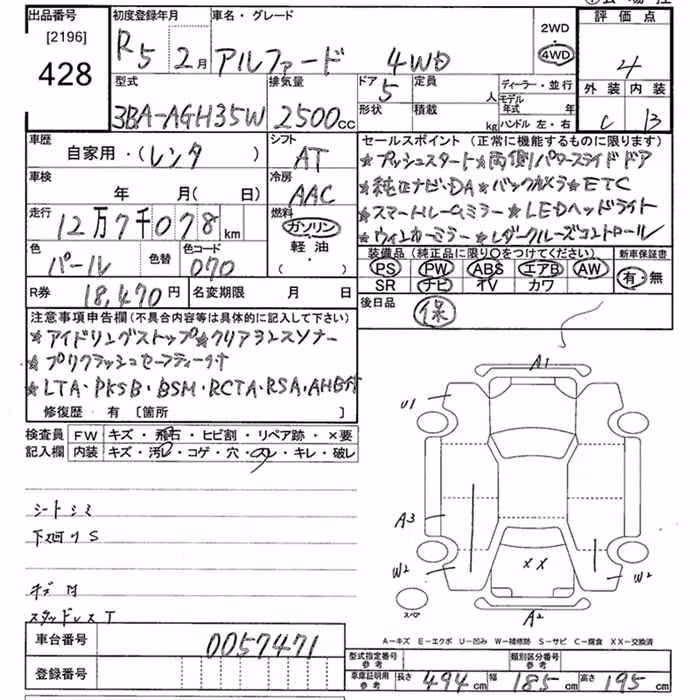 出品番号 初度登録年月 車名・グレード 2WD 評価点
[2196] R5 2月 アルファード 4WD 4WD 4
428 外装 内装
型式 排気量 ドア 定員 ディーラー・並行 C B
3BA-AGH35W 2500cc 5 人 モデル年式 年
形状 積載 kg ハンドル 左・右
車歴 シフト セールスポイント (正常に機能するものに限ります)
自家用・(レンタ ) AT ★プッシュスタート★両側パワースライドドア
車検 冷房 ★純正ナビ・DA★バックカメラ★ETC
年 月( 日) AAC ★スマートルームミラー★LEDヘッドライト
走行 燃料 ★ウィンカーミラー★レダークルーズコントロール
12万7千078km ガソリン
色 色替 色コード 軽油 装備品(純正品に限り○をつけてください) 新車保証書
パール 070 ( ・ ) PS PW ABS エアB AW 有・無
SR ナビ TV カワ
R券 18,470円 名変期限 月 日 後日品 保
注意事項申告欄(不具合内容等は具体的に記入して下さい)
★アイドリングストップ★クリアランスソナー
★プリクラッシュセーフティー付
★LTA・PKSB・BSM・RCTA・RSA・AHB付
修復歴 有 [箇所 ]
検査員 FW キズ・飛石・ヒビ割・リペア跡・×要
記入欄 内装 キズ・汚レ・コゲ・穴・スレ・キレ・破レ
A1
U1
シートシミ
下廻りS A3
W2 XX W2
キズ 凹
スタッドレスT スペア A2
A-キズ E-エクボ U-凹み W-補修跡 S-サビ C-腐食 XX-交換済
車台番号 0057471
登録番号 型式指定番号 参考 類別区分番号 参考
車庫証明用 参考 長さ 494cm 幅 185cm 高さ 195cm